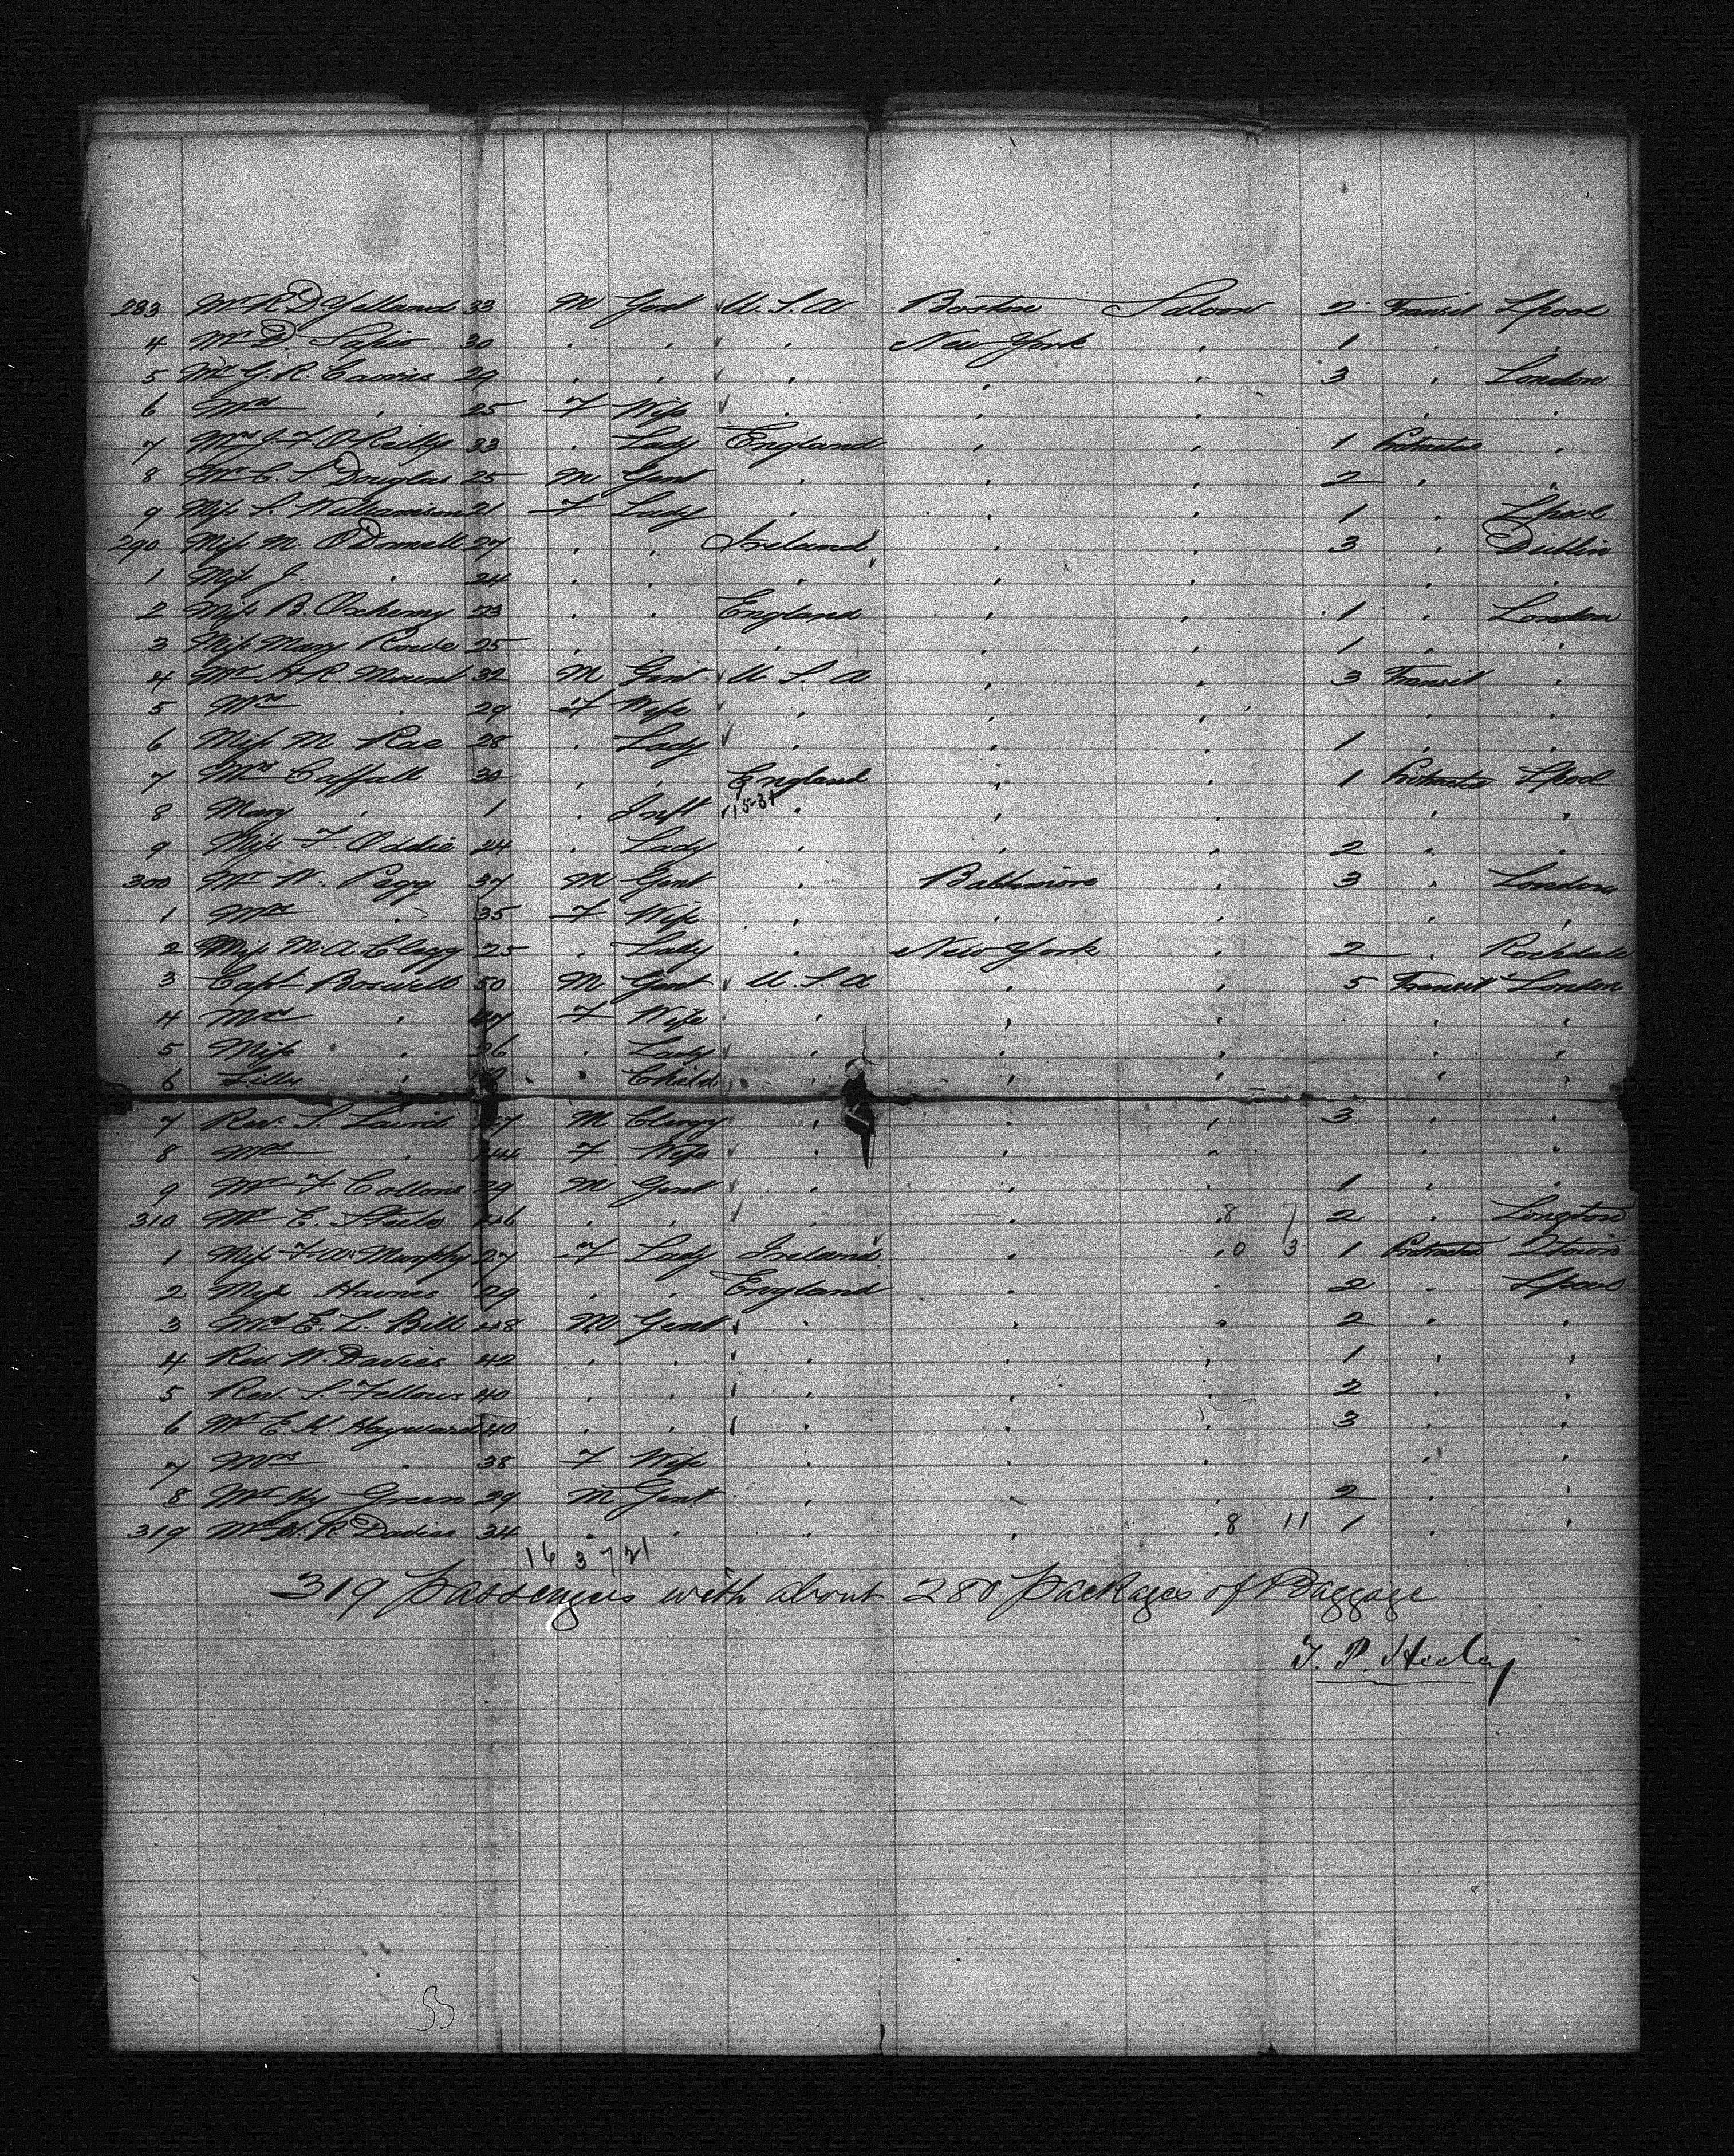 283 Mr R. D. Yelland 33 M Gent U.S.A Boston Saloon 2 Transit Lpool
4 Mr D. Sapio 30 " " " New York " 1 " "
5 Mr G. R. 29 " " " " " 3 " London
6 Mrs " 25 F Wife " " " " "
7 Mrs J. F. O'Reilly 33 " Lady England " " 1 Protracted "
8 Mr C. S. Douglas 25 M Gent " " " 2 " "
9 Miss S. Williamson 21 F Lady " " " 1 " Lpool
290 Miss M. O'Donnell 27 " " Ireland " " 3 " Dublin
1 Miss J. " 24 " " " " " " "
2 Miss B. 23 " " England " " 1 " London
3 Miss Mary Rowe 25 " " " " " 1 " "
4 Mr H R Mount 32 M Gent U S A " " 3 Transit "
5 Mrs " 29 F Wife " " " " "
6 Miss M. Rae 28 " Lady " " " 1 " "
7 Mrs Caffall 30 " " England " " 1 Protracted Lpool
8 Mary " 1 " Inft 15-31 " " " " "
9 Miss F. Oddie 24 " Lady " " " 2 " "
300 Mr W. Pegg 37 M Gent " Baltimore " 3 " London
1 Mrs " 35 F Wife " " " " "
2 Miss M. A. Clegg 25 " Lady " New York " 2 " Rochdale
3 Capt Boswell 50 M Gent U.S.A " " 5 Transit London
4 Mrs " F Wife " " " " "
5 Miss " 26 " Lady " " " " "
6 Lilly " " Child " " " " "
7 Rev. S. Laird M Clergy " " " 3 " "
8 Mrs " 44 F Wife " " " " "
9 Mr F Collins 29 M Gent " " " 1 " "
310 Mr E. Steele 46 " " " " " 8 7 2 " Longton
1 Miss F. A. Murphy 27 F Lady Ireland " " 0 3 1 Protracted Qtown
2 Miss Haines 29 " " England " " 2 " Lpool
3 Mr E. L. Bill 48 M Gent " " " 2 " "
4 Rev W. Davies 42 " " " " " 1 " "
5 Rev. S. Fellows 40 " " " " " 2 " "
6 Mr E. K. Hayward 40 " " " " " 3 " "
7 Mrs " 38 F Wife " " " " "
8 Mr Hy Green 29 M Gent " " " 2 " "
319 Mr W. R. Davies 34 " " " " " 8 11 1 " "
16 3 7 21
319 Passengers with about 280 Packages of Baggage
T. P. Heeley